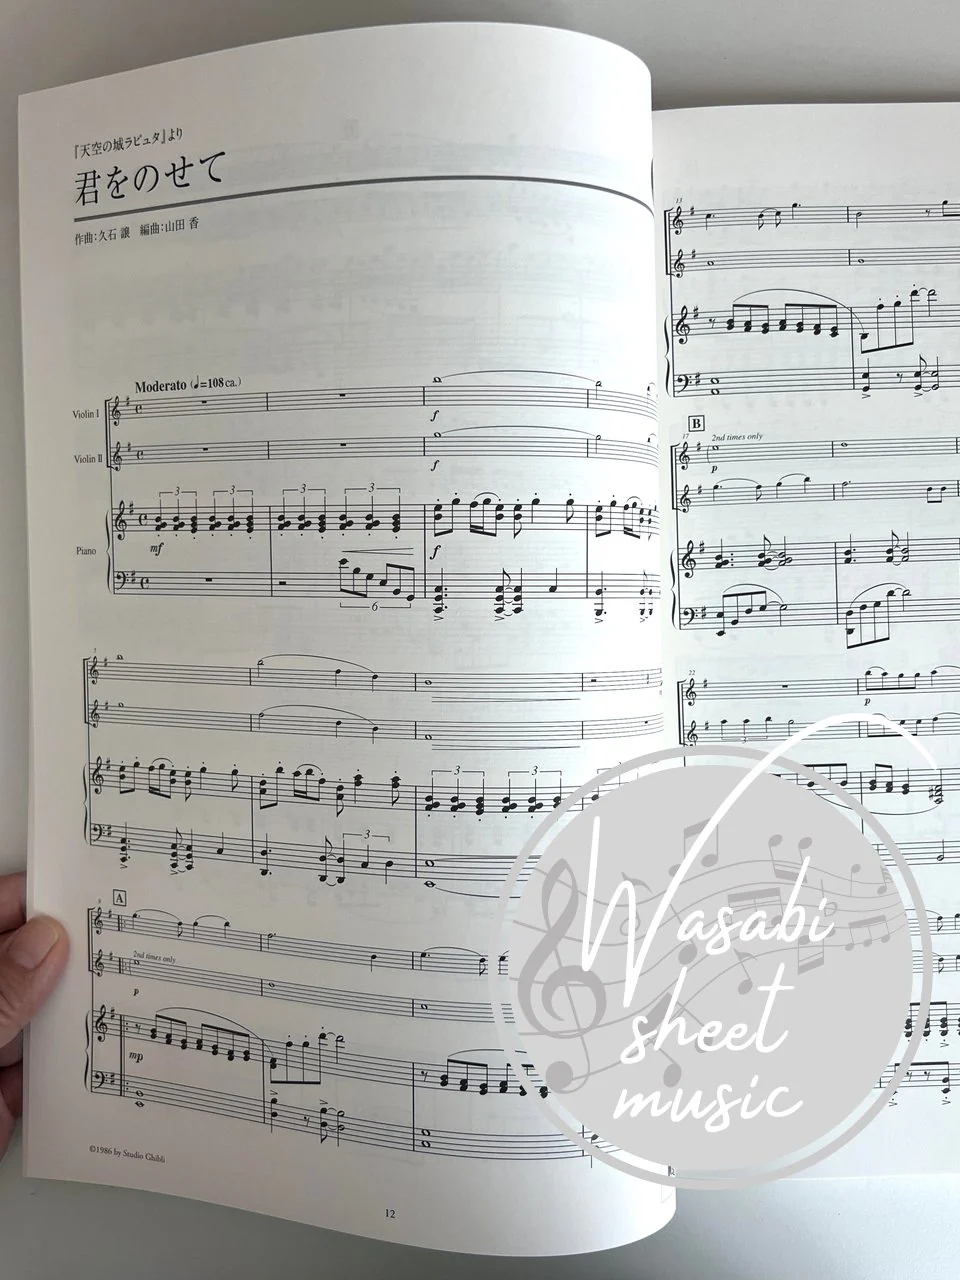 『天空の城ラピュタ』より
君をのせて
作曲：久石 譲　編曲：山田 香
Moderato (♩=108ca.)
Violin I
f
Violin II
f
3 3 3 3
Piano
mf
f
6
5
3 3 3
3
9
A
2nd times only
p
mp
©1986 by Studio Ghibli
12
13
B
17
2nd times only
p
22
p
3
Wasabi
sheet
music